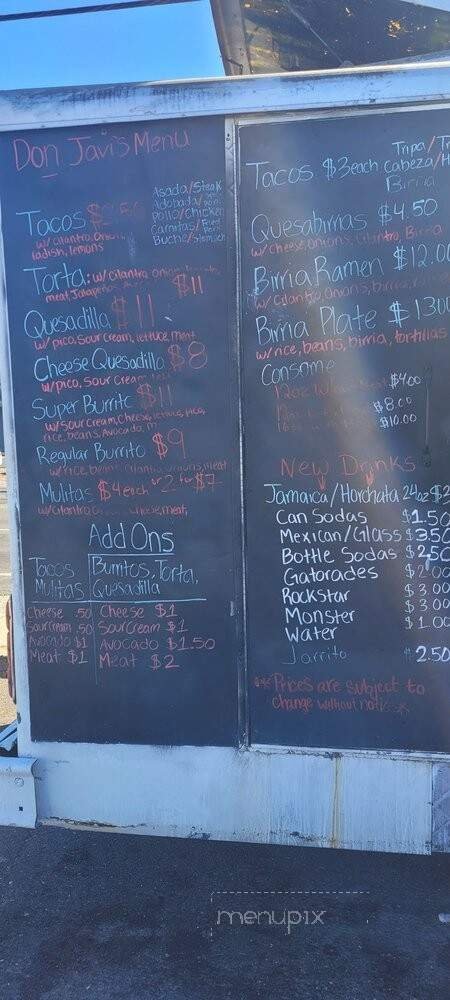 Don Javi's Menu
Tacos
Asada/Steak
Adobada/
Pollo/Chicken
Carnitas/
Buche/Stomach
w/ cilantro, Onion,
radish, lemons
Torta: w/ Cilantro, Onion,
meat, Jalapeños $11
Quesadilla $11
w/ pico, sour cream, lettuce, meat
Cheese Quesadilla $8
w/pico, sour cream
Super Burrito $11
w/ sour cream, cheese, lettuce, pico,
rice, beans, Avocado,
Regular Burrito $9
w/ rice, beans, cilantro, onions, meat
Mulitas $4 each or 2 for $7
w/ cilantro cheese, meat,
Add Ons
Tacos
Mulitas
Burritos, Torta,
Quesadilla
Cheese .50 Cheese $1
Sour Cream .50 Sour Cream $1
Avocado $1 Avocado $1.50
Meat $1 Meat $2
Tacos $3 each
Tripa/
Cabeza/
Birria
Quesabirrias $4.50
w/ cheese, onions, cilantro, Birria
Birria Ramen $12.00
w/ Cilantro, Onions, birria,
Birria Plate $1300
w/ rice, beans, birria, tortillas
Consome
12oz $4.00
$8.00
$10.00
New Drinks
Jamaica/Horchata 24oz
Can Sodas $1.50
Mexican/Glass $3.50
Bottle Sodas $2.50
Gatorades $2.00
Rockstar $3.00
Monster $3.00
Water $1.00
Jarrito $2.50
Prices are subject to
change without notice
menupix